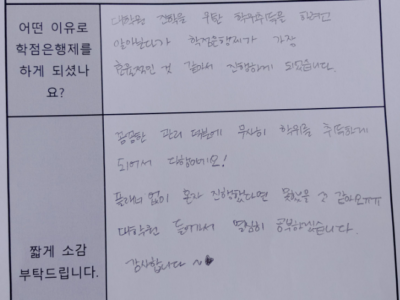 어떤 이유로
학점은행제를
하게 되셨나
요?
대학원 진학을 위한 학위취득을 하려고
알아보다가 학점은행제가 가장
효율적인 것 같아서 진행하게 되었습니다.
짧게 소감
부탁드립니다.
꼼꼼한 관리 덕분에 무사히 학위를 취득하게
되어서 다행이네요!
멘토님 없이 혼자 진행했다면 못했을 것 같아요ㅠㅠ
대학원 들어가서 열심히 공부하겠습니다.
감사합니다 ~